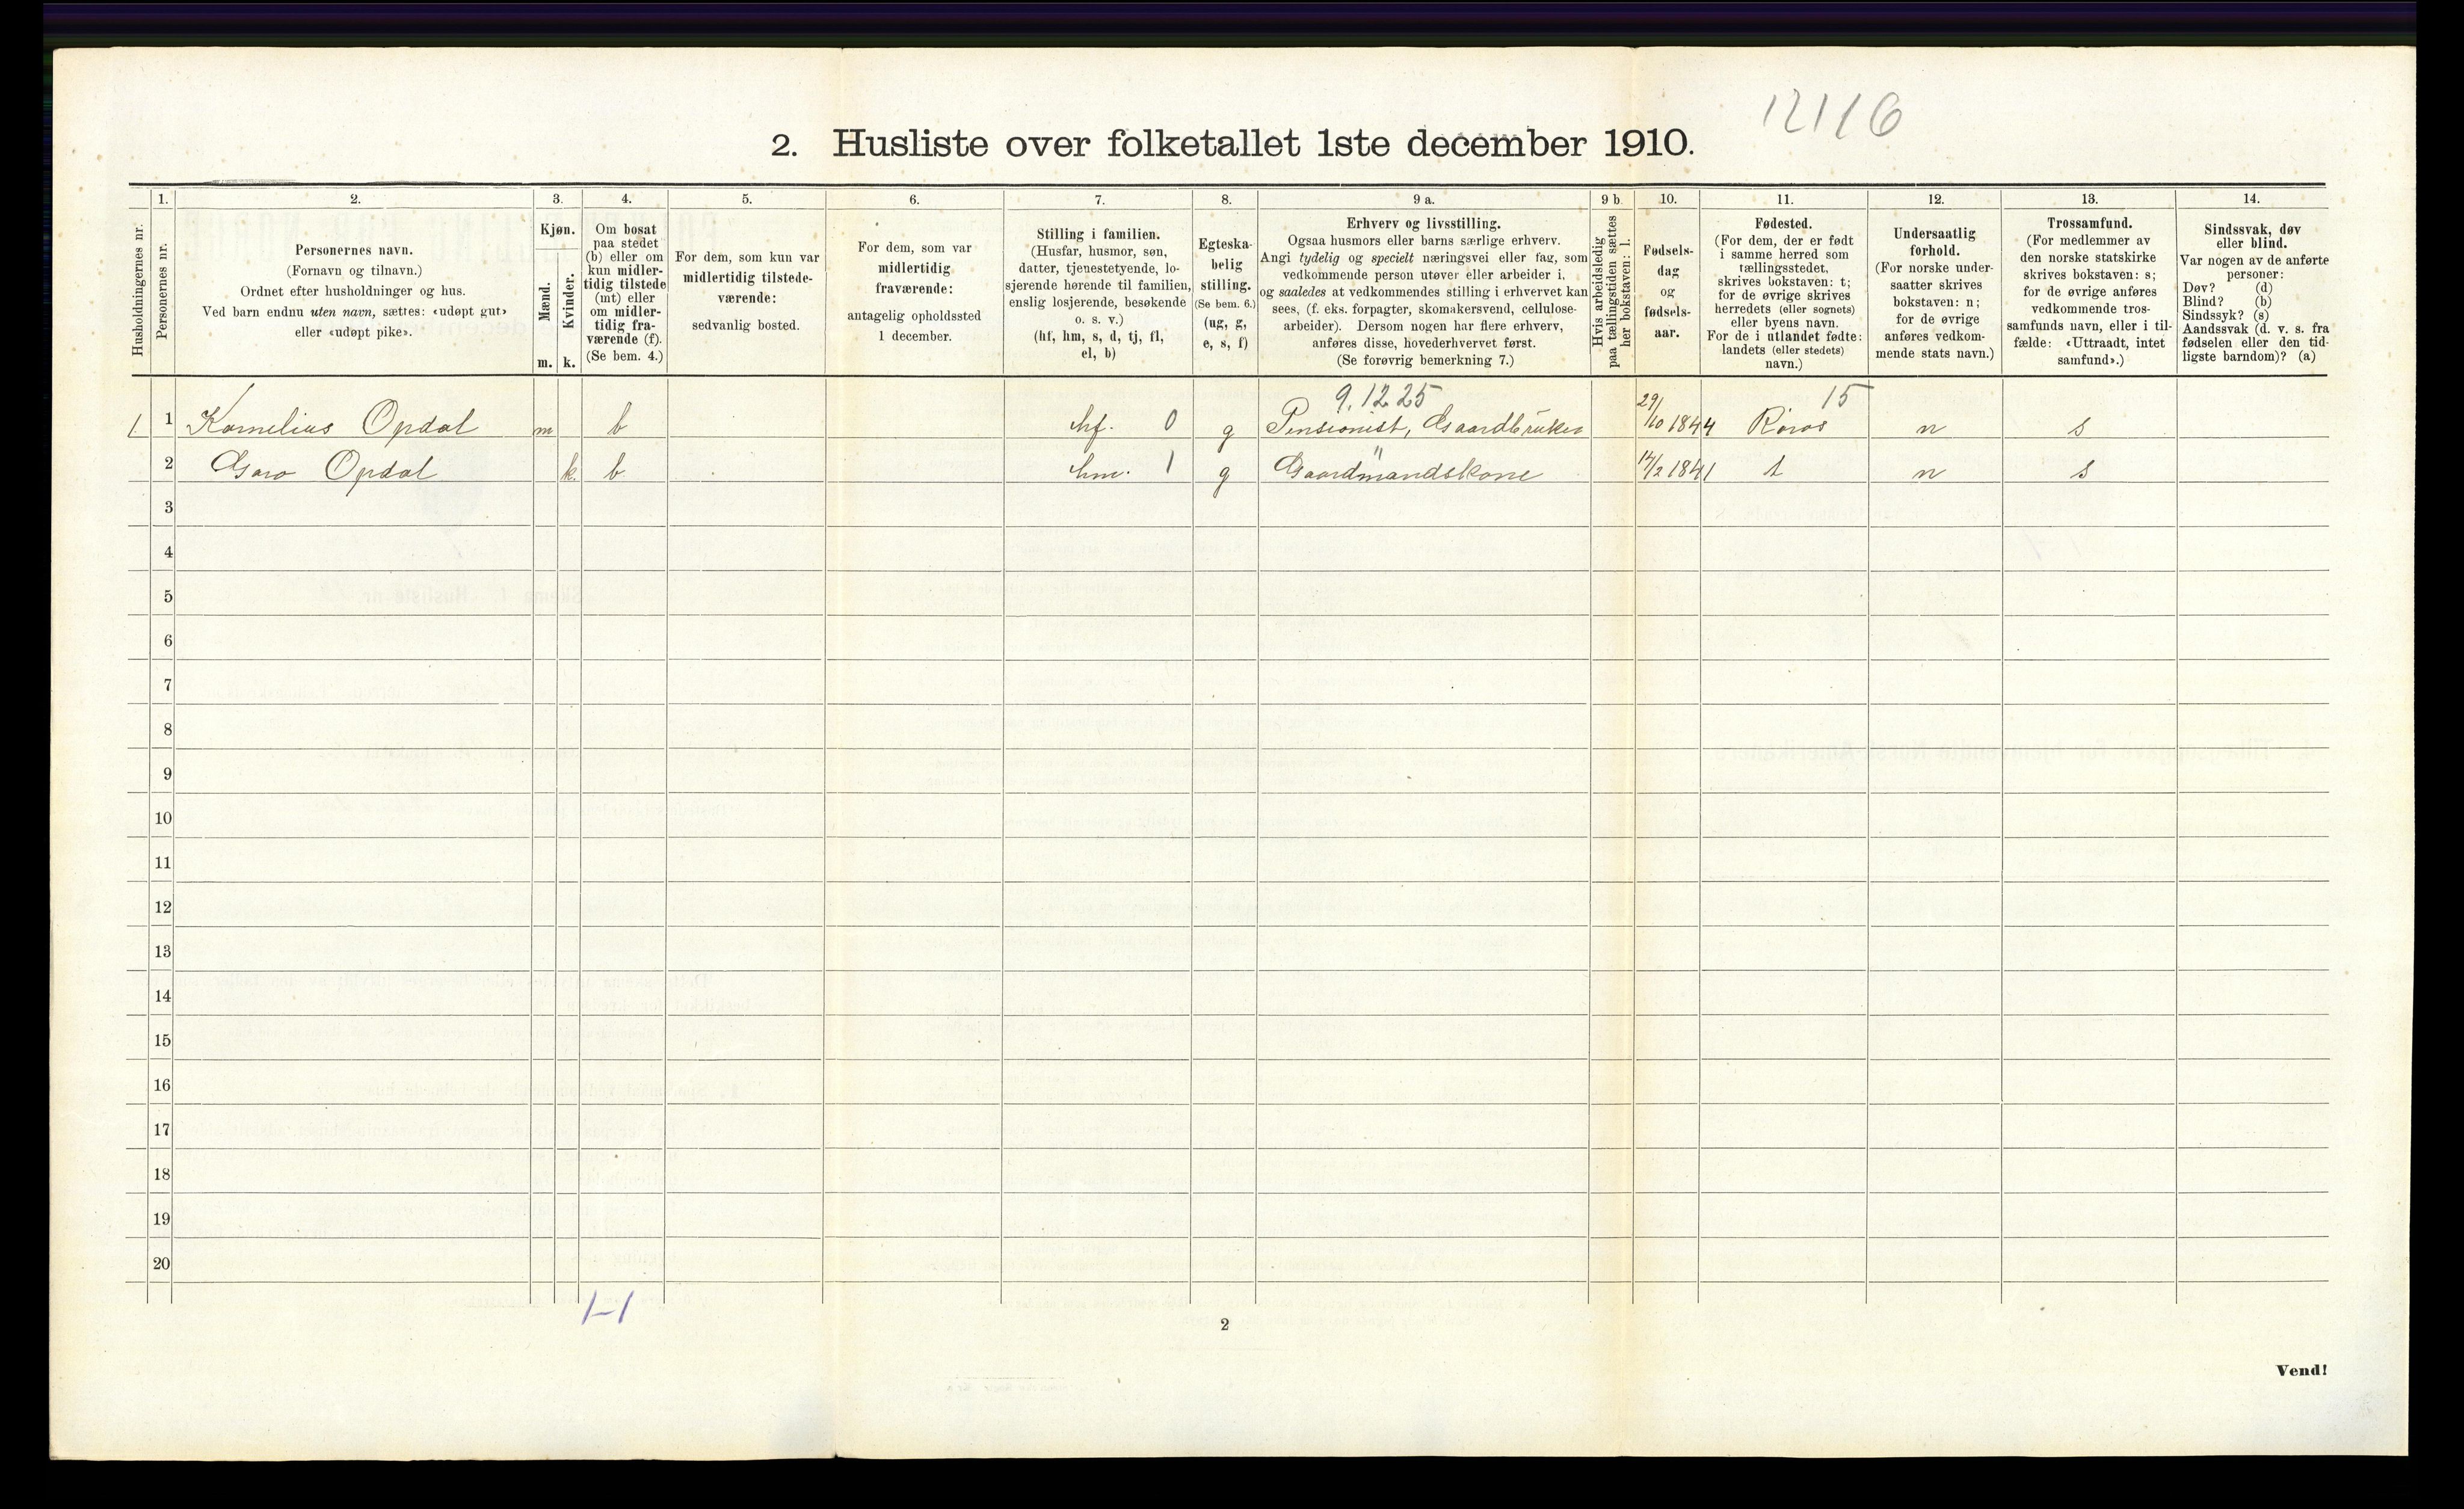 12116
2. Husliste over folketallet 1ste december 1910.
Husholdningernes nr.
1.
Personernes nr.
2.
Personernes navn.
(Fornavn og tilnavn.)
Ordnet efter husholdninger og hus.
Ved barn endnu uten navn, sættes: «udøpt gut»
eller «udøpt pike».
3.
Kjøn.
Mænd.
Kvinder.
m. k.
4.
Om bosat
paa stedet
(b) eller om
kun midler-
tidig tilstede
(mt) eller
om midler-
tidig fra-
værende (f).
(Se bem. 4.)
5.
For dem, som kun var
midlertidig tilstede-
værende:
sedvanlig bosted.
6.
For dem, som var
midlertidig
fraværende:
antagelig opholdssted
1 december.
7.
Stilling i familien.
(Husfar, husmor, søn,
datter, tjenestetyende, lo-
sjerende hørende til familien,
enslig losjerende, besøkende
o. s. v.)
(hf, hm, s, d, tj, fl,
el, b)
8.
Egteska-
belig
stilling.
(Se bem. 6.)
(ug, g,
e, s, f)
9 a.
Erhverv og livsstilling.
Ogsaa husmors eller barns særlige erhverv.
Angi tydelig og specielt næringsvei eller fag, som
vedkommende person utøver eller arbeider i,
og saaledes at vedkommendes stilling i erhvervet kan
sees, (f. eks. forpagter, skomakersvend, cellulose-
arbeider). Dersom nogen har flere erhverv,
anføres disse, hovederhvervet først.
(Se forøvrig bemerkning 7.)
9 b.
Hvis arbeidsledig
paa tællingstiden sættes
her bokstaven: l.
10.
Fødsels-
dag
og
fødsels-
aar.
11.
Fødested.
(For dem, der er født
i samme herred som
tællingsstedet,
skrives bokstaven: t;
for de øvrige skrives
herredets (eller sognets)
eller byens navn.
For de i utlandet fødte:
landets (eller stedets)
navn.)
12.
Undersaatlig
forhold.
(For norske under-
saatter skrives
bokstaven: n;
for de øvrige
anføres vedkom-
mende stats navn.)
13.
Trossamfund.
(For medlemmer av
den norske statskirke
skrives bokstaven: s;
for de øvrige anføres
vedkommende tros-
samfunds navn, eller i til-
fælde: «Uttraadt, intet
samfund».)
14.
Sindssvak, døv
eller blind.
Var nogen av de anførte
personer:
Døv? (d)
Blind? (b)
Sindssyk? (s)
Aandssvak (d. v. s. fra
fødselen eller den tid-
ligste barndom)? (a)
9.12.25 15
1. 1 Kornelius Opdal m b hf. 0 g Pensionist, Gaardbruker 29/10 1844 Røros n s
2 Goro Opdal k. b hm. 1 g Gaardmandskone 14/2 1841 t n s
3
4
5
6
7
8
9
10
11
12
13
14
15
16
17
18
19
20
1-1
2
Vend!